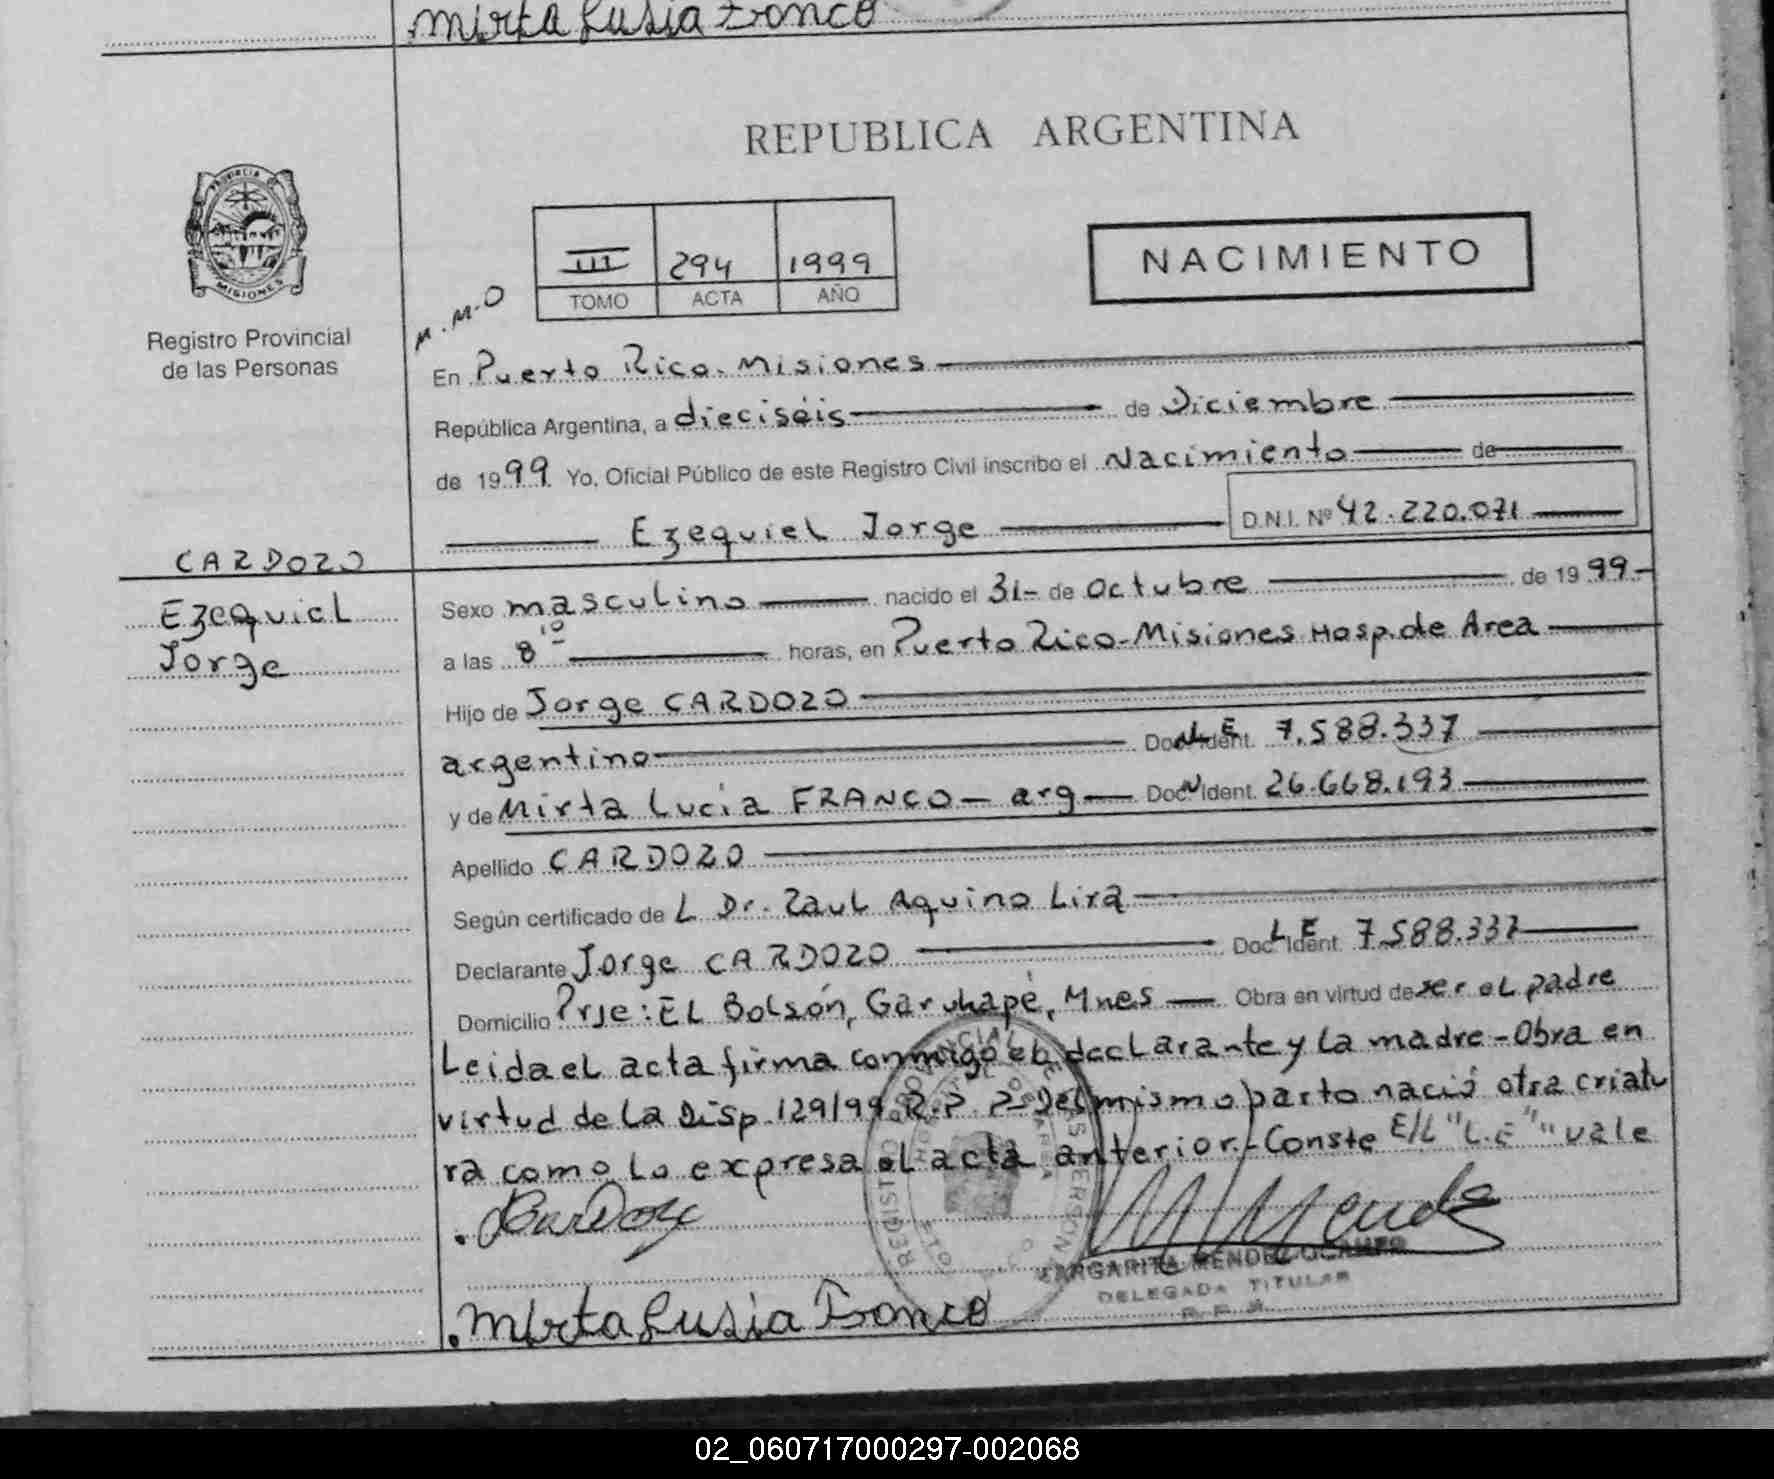 Mirta Lusia Franco
REPUBLICA ARGENTINA
PROVINCIA DE
MISIONES
Registro Provincial
de las Personas
III 294 1999
TOMO ACTA AÑO
NACIMIENTO
M.M.O
En Puerto Rico. Misiones
República Argentina, a dieciséis de Diciembre
de 1999 Yo, Oficial Público de este Registro Civil inscribo el Nacimiento de
Ezequiel Jorge D.N.I. Nº 42.220.071
CARDOZO
Ezequiel
Jorge
Sexo masculino nacido el 31- de Octubre de 1999.-
a las 8 10 horas, en Puerto Rico-Misiones Hosp. de Area
Hijo de Jorge CARDOZO
argentino Doc. Ident. L.E 7.588.337
y de Mirta Lucia FRANCO - arg Doc. Ident. 26.668.193
Apellido CARDOZO
Según certificado de L Dr. Raul Aquino Lira
Declarante Jorge CARDOZO Doc. Ident. L E 7.588.337
Domicilio Prje: EL Bolsón, Garuhapé, Mnes Obra en virtud de ser el padre
Leida el acta firma conmigo el declarante y la madre - Obra en
virtud de la Disp. 129/99 R.P.P- Del mismo parto nació otra criatu
ra como lo expresa el acta anterior.- Conste E/L "L.E" "vale
Cardozo
MARGARITA MENDEZ OCAMPO
DELEGADA TITULAR
R.P.P.
Mirta Lusia Franco
02_060717000297-002068